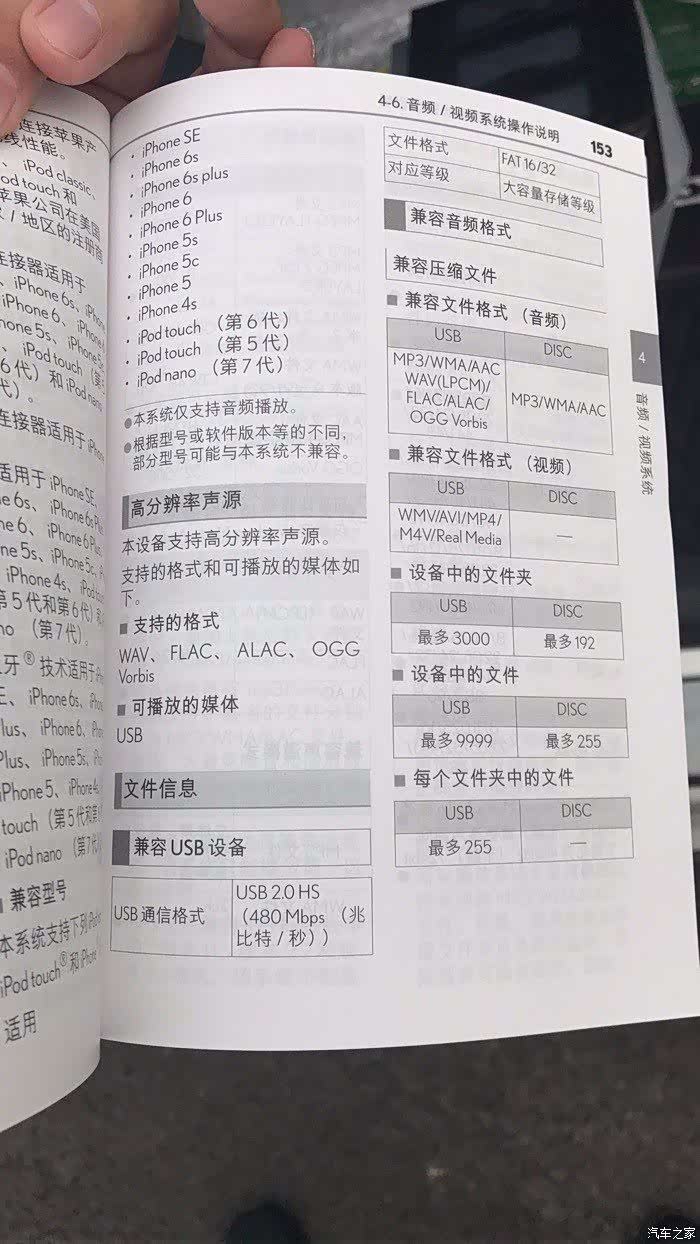 连接苹果产
线性能。
、iPod classic、
od touch 和
苹果公司在美国
/ 地区的注册商
连接器适用于
、iPhone 6s、
iPhone 6、iPhone
hone 5s、iPhone 5c
、iPod touch（第
6代）和 iPod nano
代）。
连接器适用于
适用于 iPhone SE、
ne 6s、iPhone 6s
ne 6、iPhone 6 Plus、
ne 5s、iPhone 5c、
iPhone 4s、iPod touch
第5代和第6代）和
no （第7代）。
牙® 技术适用于
E、iPhone 6s、
lus、iPhone 6、
Plus、iPhone 5s、
iPhone 5、iPhone 4s、
touch（第5代和第6
iPod nano（第7代）
兼容型号
本系统支持下列
iPod touch® 和 iPhone
适用
4-6. 音频 / 视频系统操作说明 153
· iPhone SE
· iPhone 6s
· iPhone 6s plus
· iPhone 6
· iPhone 6 Plus
· iPhone 5s
· iPhone 5c
· iPhone 5
· iPhone 4s
· iPod touch （第 6 代）
· iPod touch （第 5 代）
· iPod nano （第 7 代）
●本系统仅支持音频播放。
●根据型号或软件版本等的不同，
部分型号可能与本系统不兼容。
高分辨率声源
本设备支持高分辨率声源。
支持的格式和可播放的媒体如
下。
■ 支持的格式
WAV、 FLAC、 ALAC、 OGG
Vorbis
■ 可播放的媒体
USB
文件信息
兼容 USB 设备
USB 通信格式 USB 2.0 HS
（480 Mbps （兆
比特 / 秒））
文件格式 FAT 16/32
对应等级 大容量存储等级
兼容音频格式
兼容压缩文件
■ 兼容文件格式 （音频）
USB DISC
MP3/WMA/AAC
WAV(LPCM)/
FLAC/ALAC/
OGG Vorbis
MP3/WMA/AAC
■ 兼容文件格式 （视频）
USB DISC
WMV/AVI/MP4/
M4V/Real Media
—
■ 设备中的文件夹
USB DISC
最多 3000 最多 192
■ 设备中的文件
USB DISC
最多 9999 最多 255
■ 每个文件夹中的文件
USB DISC
最多 255 —
4
音频 / 视频系统
汽车之家